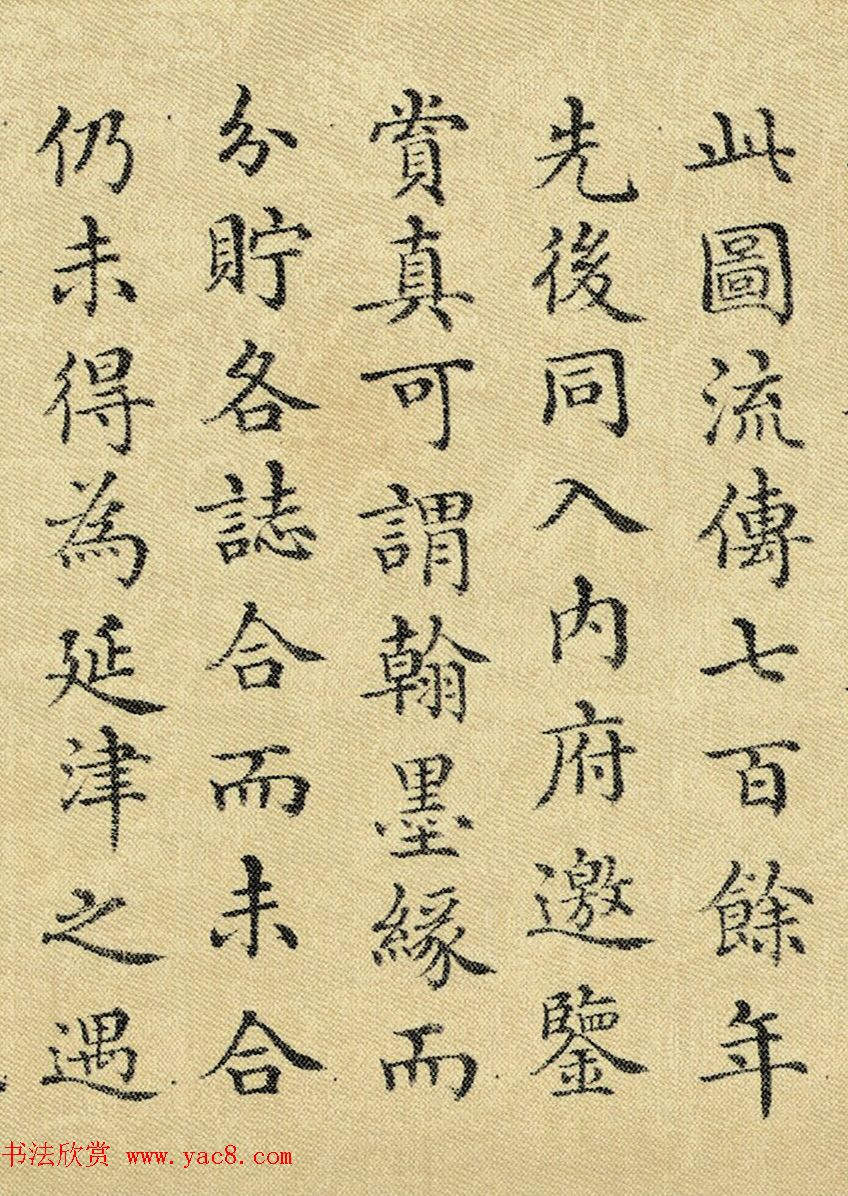 此圖流傳七百餘年
先後同入內府邀鑒
賞真可謂翰墨緣而
分貯各誌合而未合
仍未得為延津之遇
书法欣赏 www.yac8.com